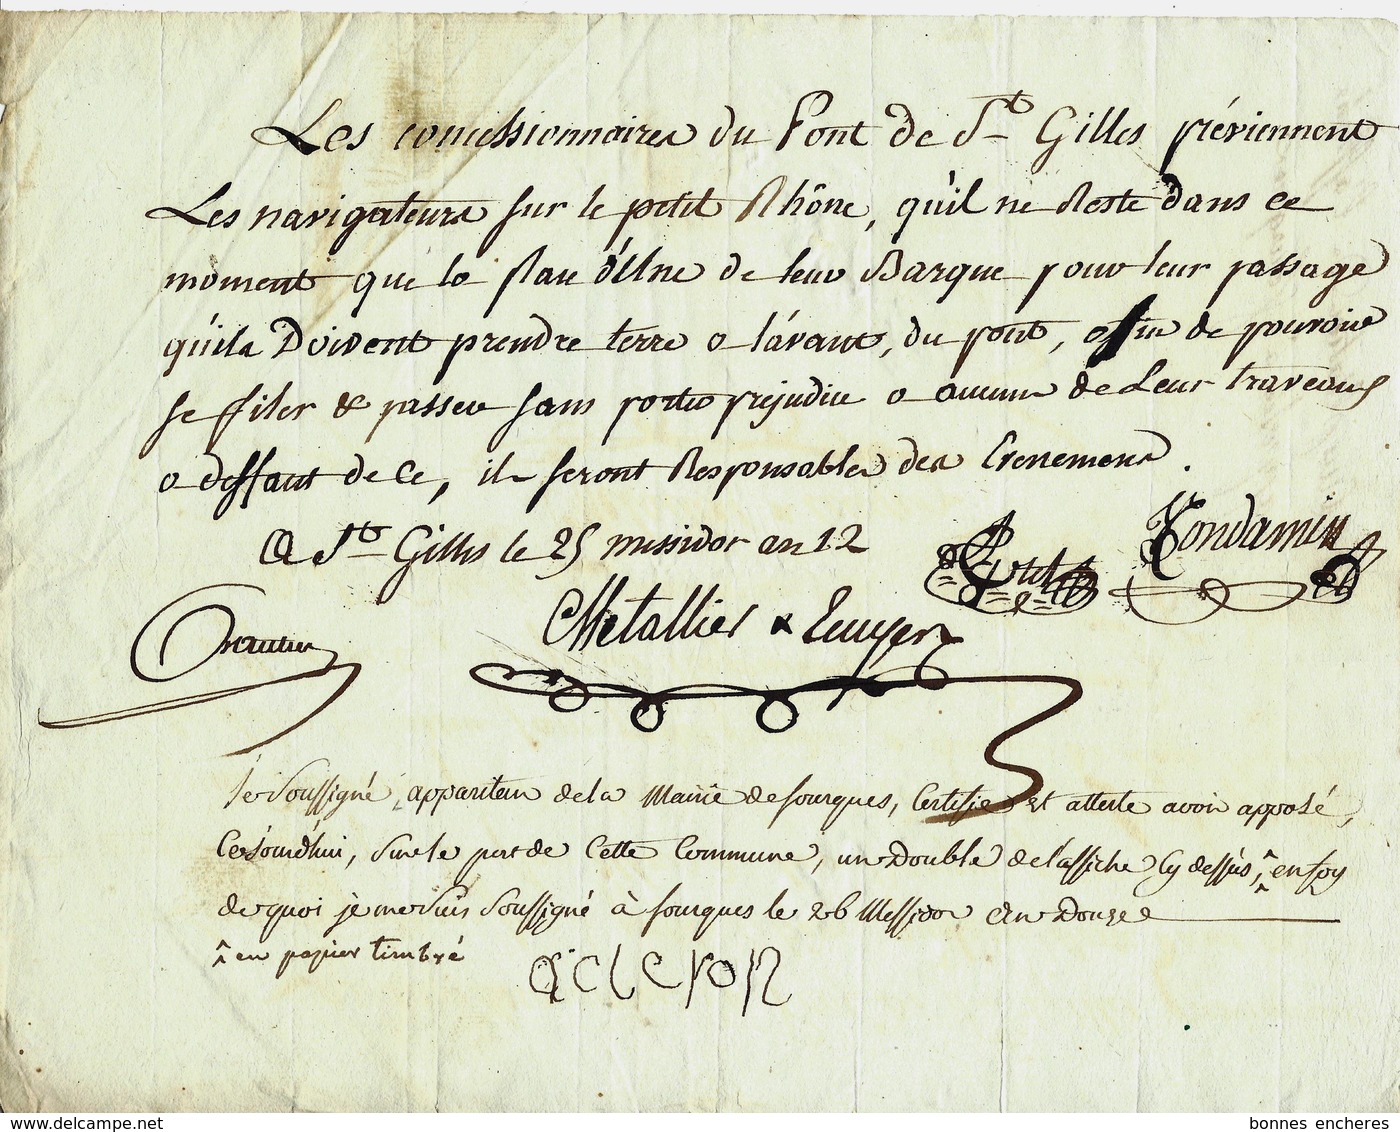 Les concessionnaires du Pont de St Gilles préviennent
Les navigateurs sur le petit Rhône, qu'il ne Reste dans ce
moment que la de leur Barque pour leur passage
qu'ils Doivent prendre terre a lavant, du pont, affin de pouvoir
se ffiler & passer sans porter préjudice a aucun de Leur traveaux
a deffaut de ce, ils seront Responsables des Evenemens.
A St Gilles le 25 messidor an 12
Petit Tondamin
Metallier &
Je soussigné, appariteur de la Mairie de fourques, Certifie et atteste avoir apposé,
Cejourd'hui, sur le port de Cette Commune, un Double de l'affiche Cy dessus, ^ en foy
de quoi je me suis soussigné à fourques le 26 Messidor an Douze
^ en papier timbré
www.delcampe.net
bonnes encheres